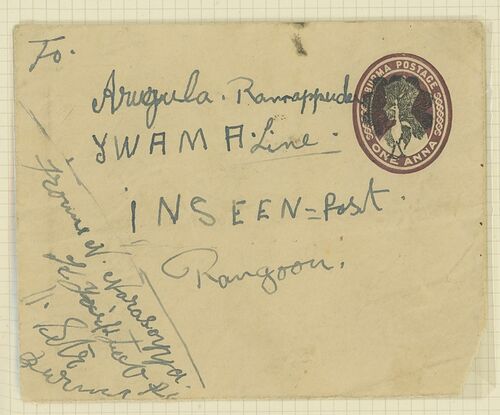 To.
BURMA POSTAGE
ONE ANNA
Arugula. Ramappudu
YWAMA. Line.
INSEEN = Post.
Rangoon.
From N. Narasayya.
Burma